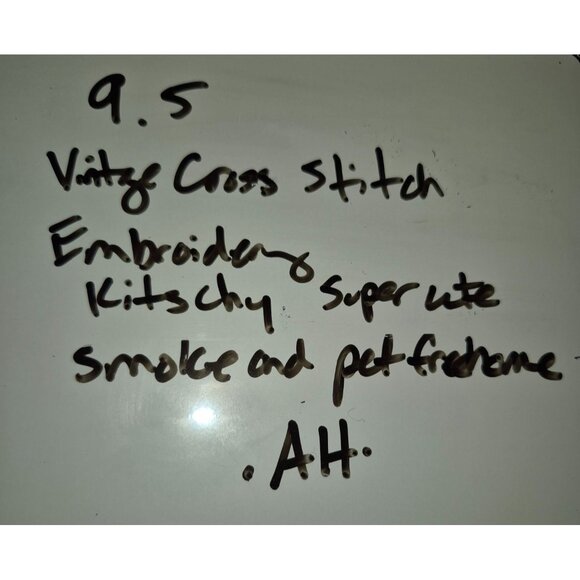 9.5
Vintge Cross Stitch
Embroidery
Kitschy super cute
smoke and pet free home
.AH.